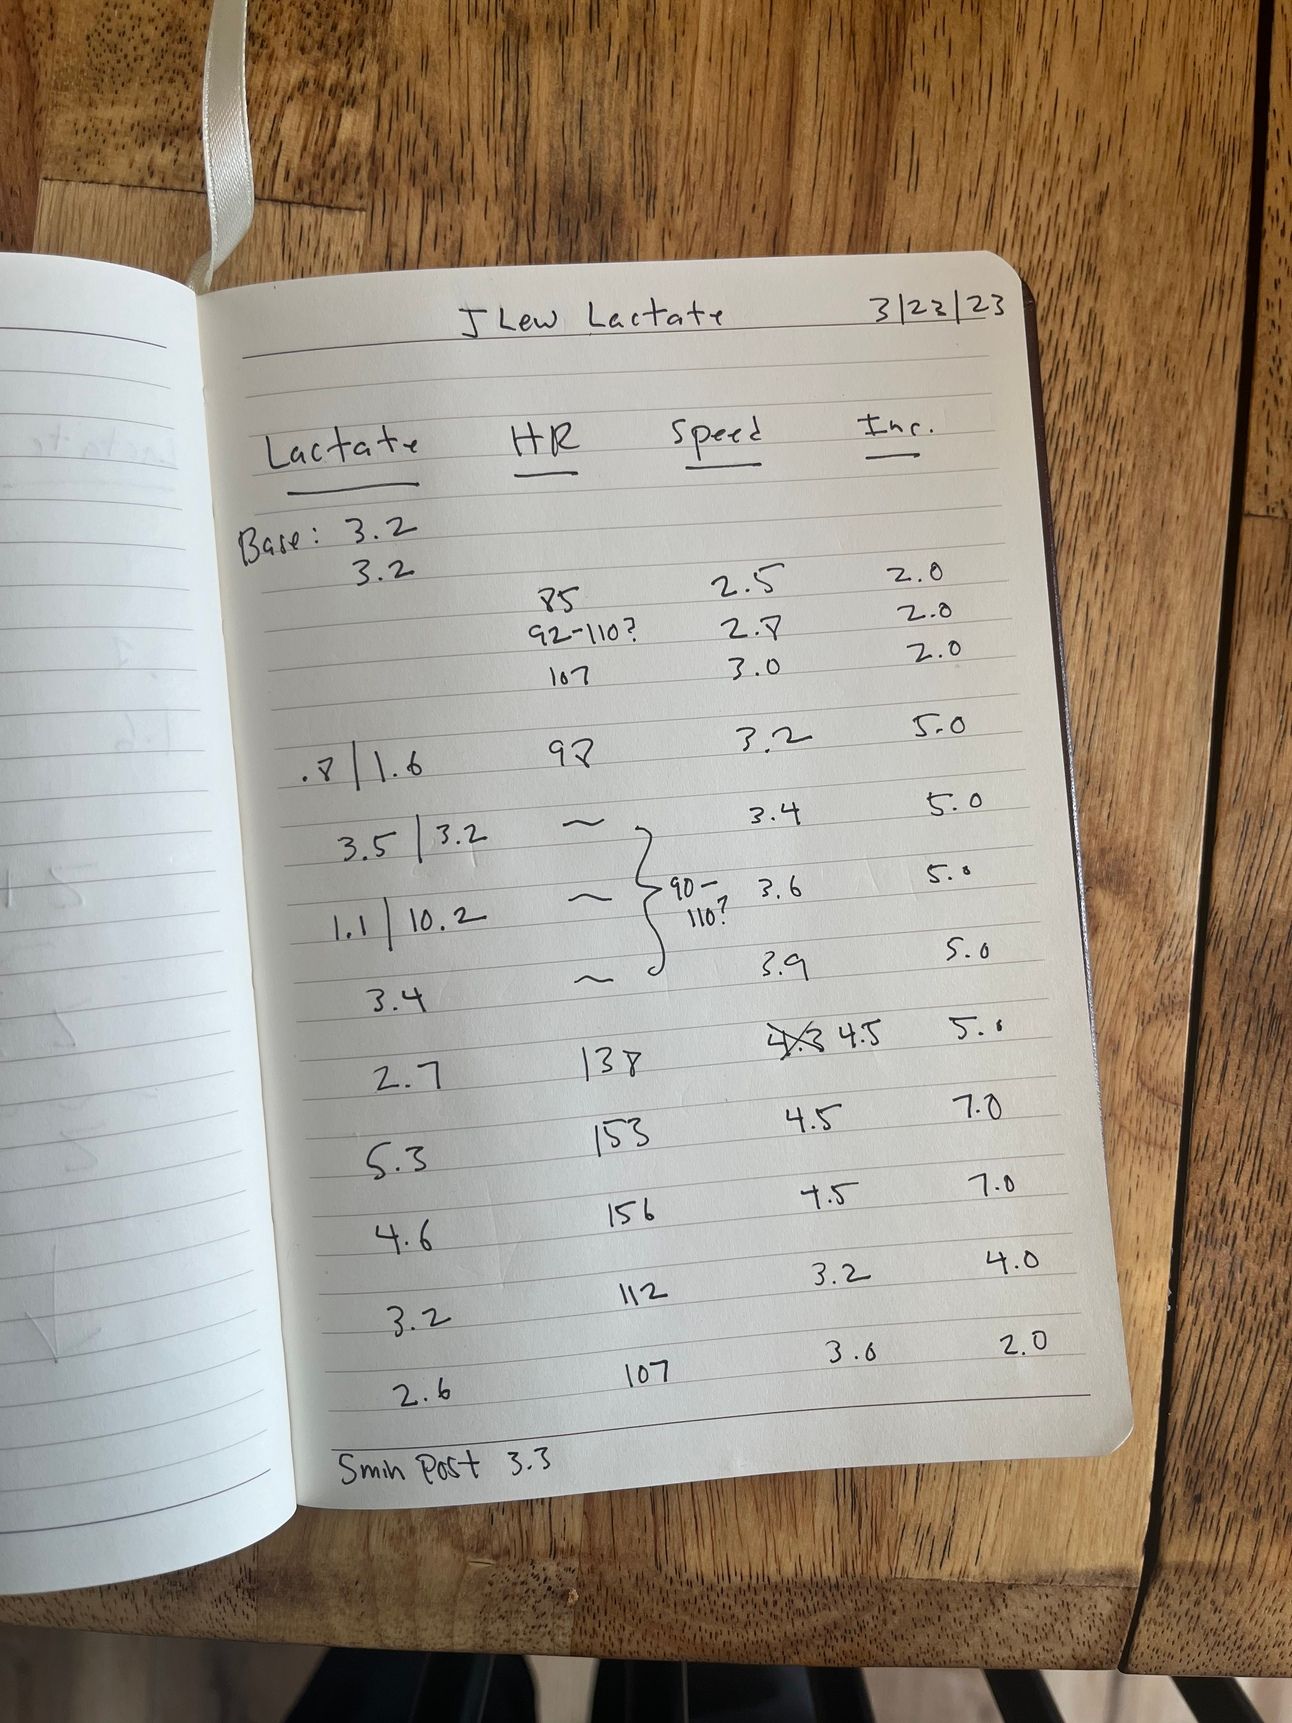 J Lew Lactate 3/23/23
Lactate HR Speed Inc.
Base: 3.2
3.2
85 2.5 2.0
92-110? 2.8 2.0
107 3.0 2.0
.8 | 1.6 98 3.2 5.0
3.5 | 3.2 ~ 3.4 5.0
1.1 | 10.2 ~ } 90- 3.6 5.0
110?
3.4 ~ 3.9 5.0
2.7 138 4.3 4.5 5.0
5.3 153 4.5 7.0
4.6 156 4.5 7.0
3.2 112 3.2 4.0
2.6 107 3.0 2.0
5min Post 3.3